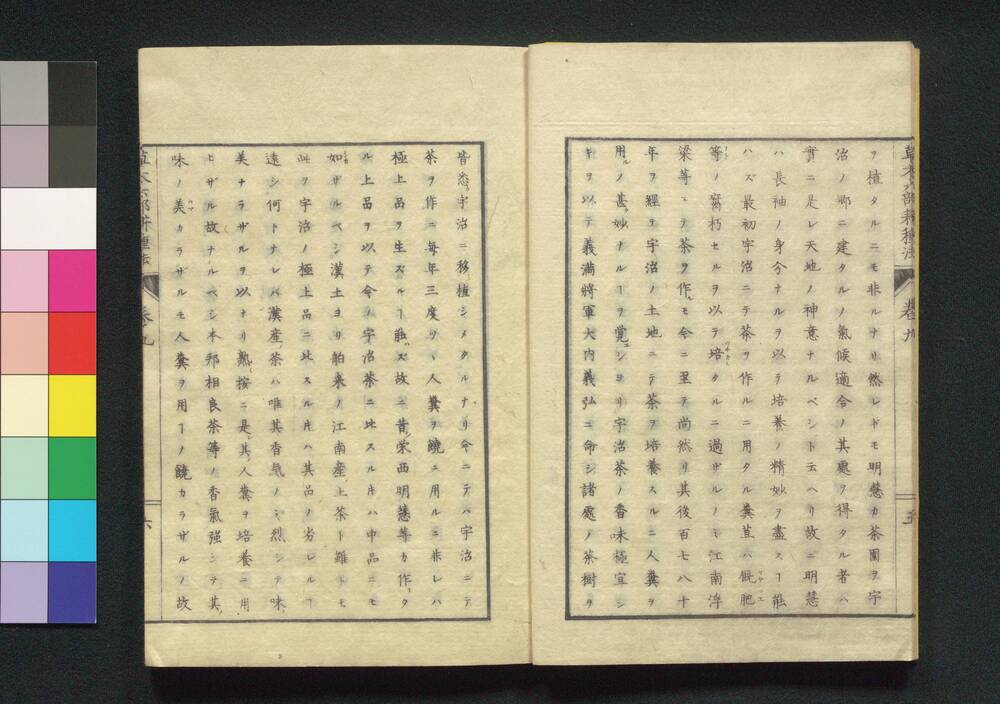 草木六部耕種法 巻九 五
ヲ植タルニモ非ルナリ然レドモ明慧カ茶園ヲ宇
治ノ郷ニ建タルノ氣候適合ノ其處ヲ得タル者ハ
實ニ是レ天地ノ神意ナルベシト云ヘリ故ニ明慧
ハ長袖ノ身分ナルヲ以テ培養ノ精妙ヲ盡スヿ能
ハズ最初宇治ニテ茶ヲ作ルニ用タル糞苴ハ厩肥
等ノ腐朽セルヲ以テ培タルニ過ザルノミ江南浮
梁等ニテ茶ヲ作モ今ニ至テ尚然リ其後百七八十
年ヲ經テ宇治ノ土地ニテ茶ヲ培養スルニ人糞ヲ
用ルノ甚妙ナルヿヲ覚エシヨリ宇治茶ノ香味極宜シ
キヲ以テ義満將軍大内義弘ニ命シ諸處ノ茶樹ヲ
皆悉ク宇治ニ移植シメタルナリ今ニテハ宇治ニテ
茶ヲ作ニ毎年三度ツヽ人糞ヲ饒ニ用ルニ非レハ
極上品ヲ生ズルヿ能ハズ故ニ昔栄西明慧等カ作タ
ル上品ヲ以テ今ノ宇治茶ニ比スル片ハ中品ニモ
如ザルベシ漢土ヨリ舶来ノ江南産ノ上茶ト雖トモ
此ヲ宇治ノ極上品ニ比スル片ハ其品ノ劣レルヿ
遠シ何トナレバ漢産ノ茶ハ唯其香氣ノミ烈シテ味ノ
美ナラザルヲ以ナリ熟按ニ是其人糞ヲ培養ニ用
ヒザル故ナルベシ本邦相良茶等ノ香氣強シテ其
味ノ美カラザルモ人糞ヲ用ヿノ饒カラザルノ故
草木六部耕種法 巻九 六